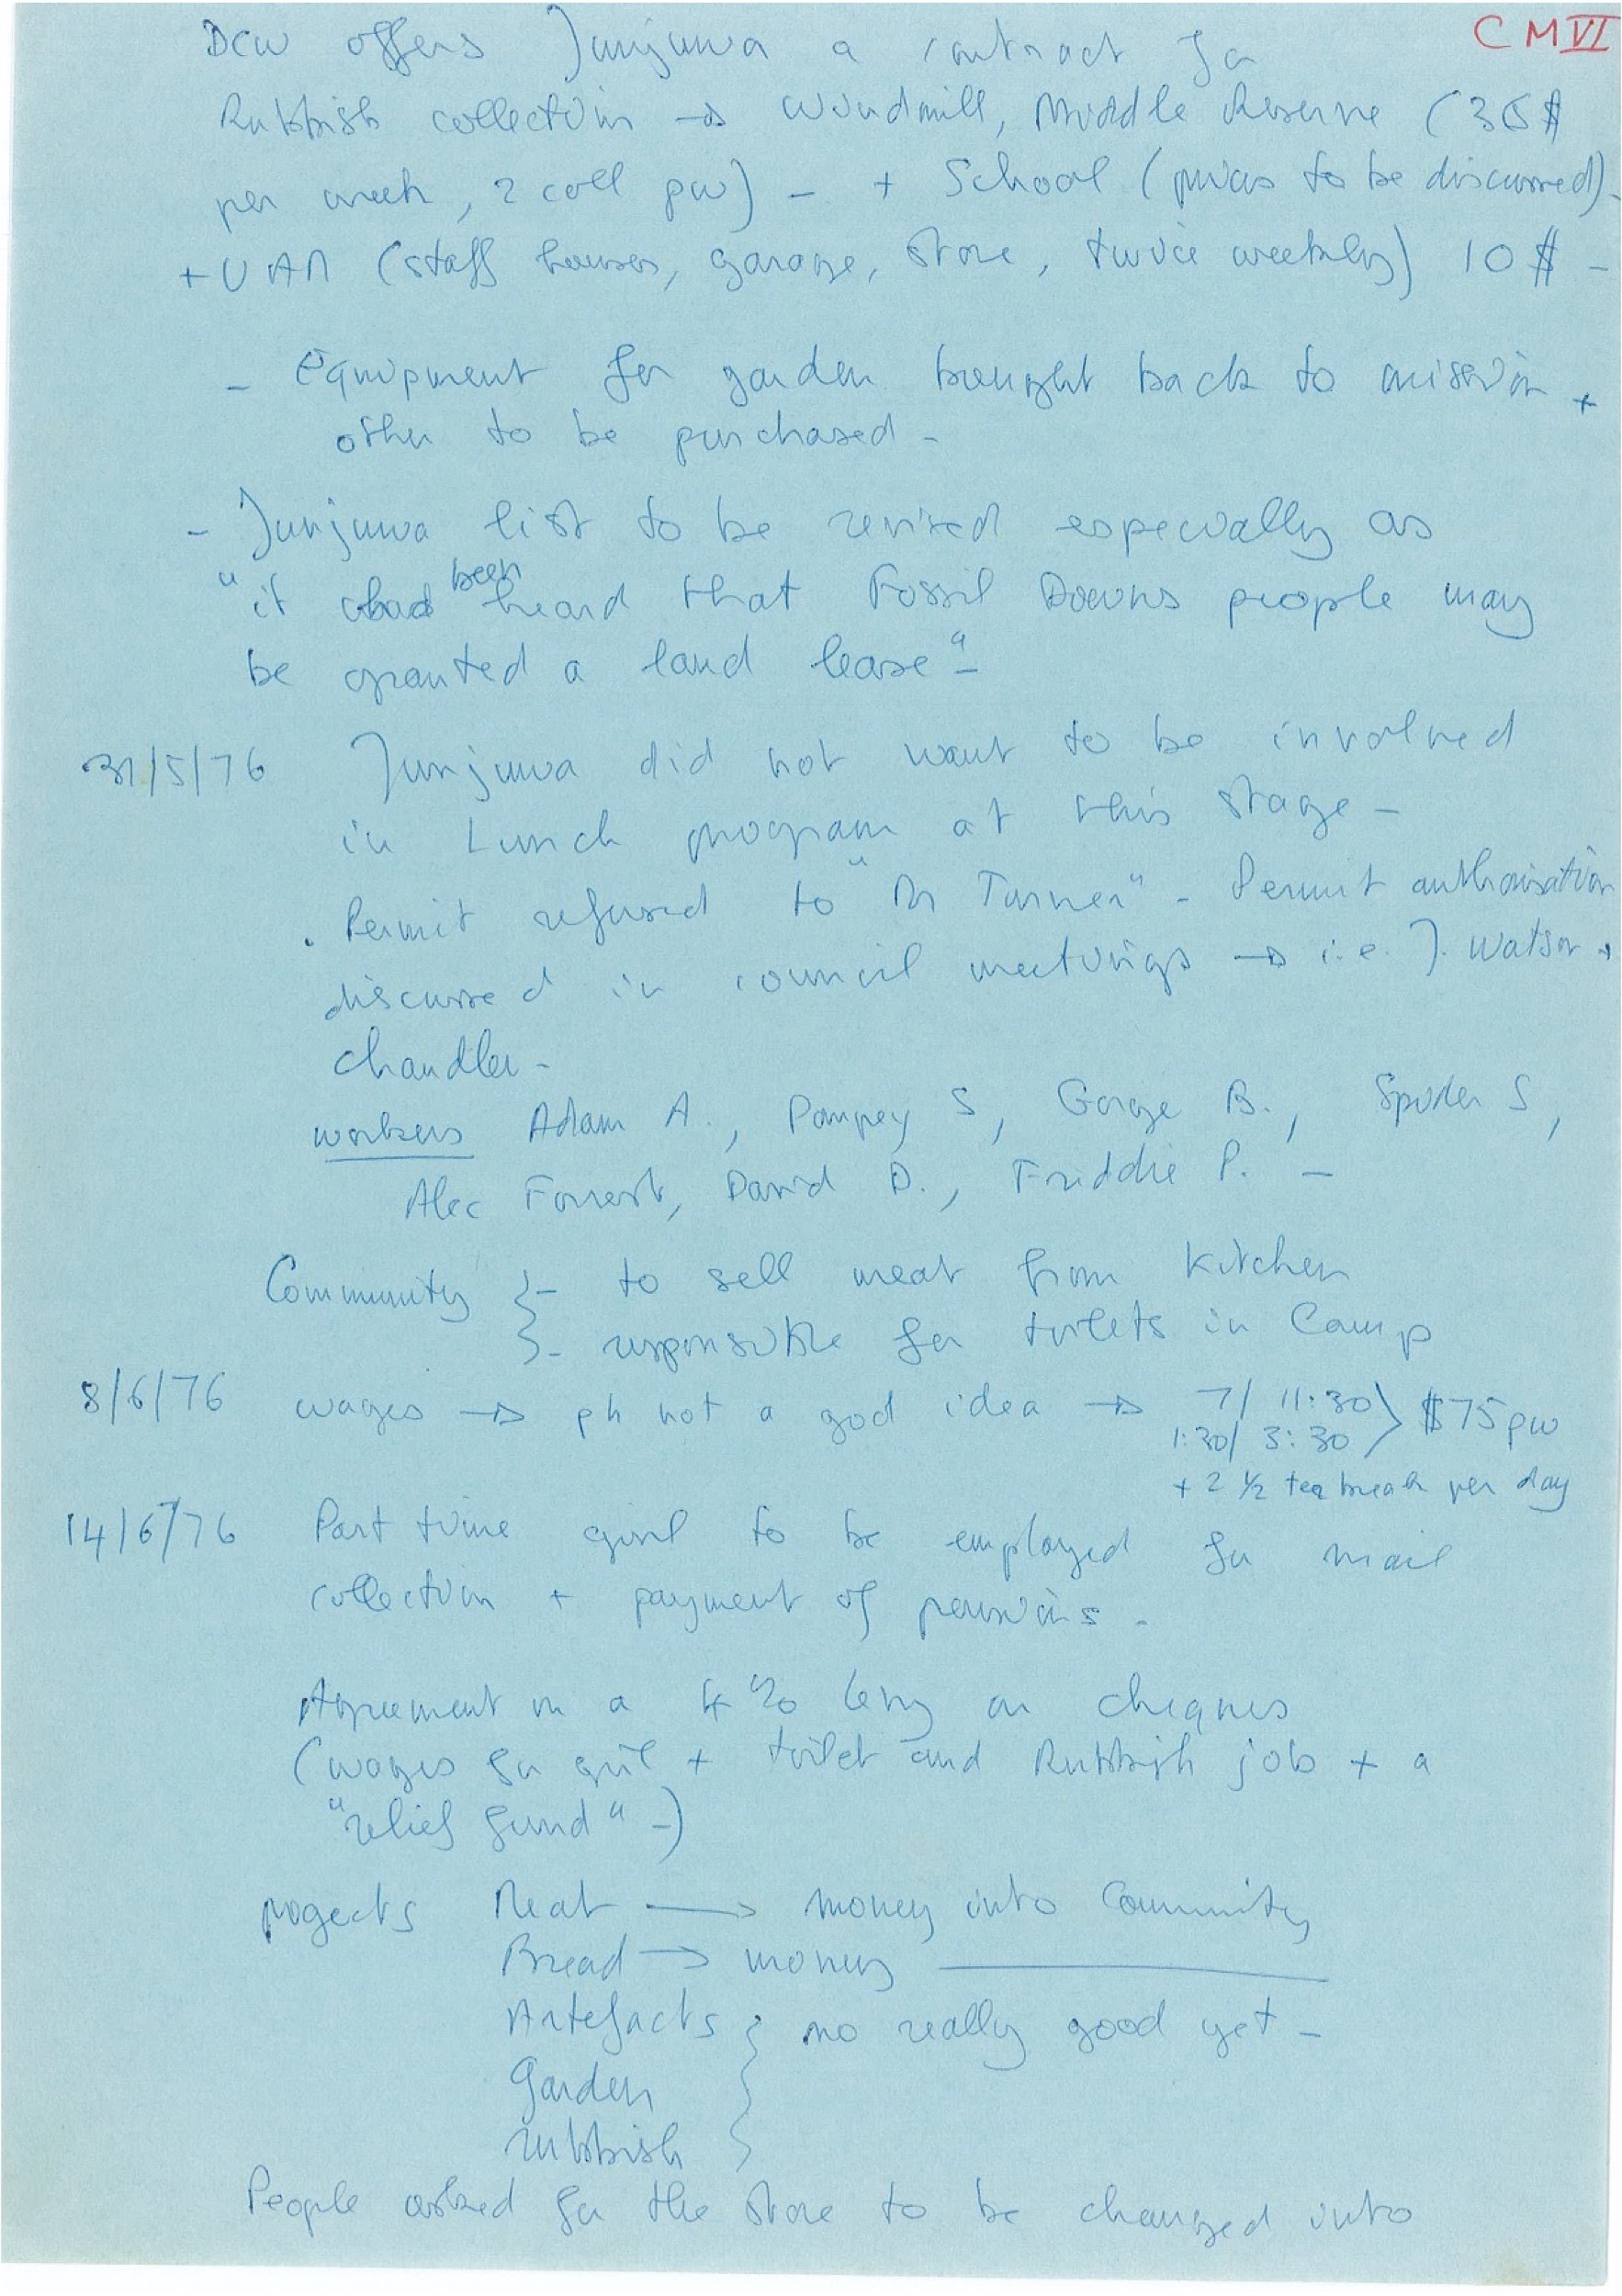 CM VI
DCW offers Junjuwa a contract for
Rubbish collection → Windmill, Middle Reserve (35$
per week, 2 coll pw) - + School (prices to be discussed)-
+ UAM (staff houses, garage, store, twice weekly) 10$ -
- Equipment for garden bought back to mission +
other to be purchased -
- Junjuwa list to be revised especially as
"it had been heard that Fossil Downs people may
be granted a land lease" -
31/5/76 Junjuwa did not want to be involved
in Lunch program at this stage -
. Permit refused to "Mr Turner" - Permit authorisation
discussed in council meetings → i.e. J. Watson +
Chandler -
workers Adam A., Pompey S, George B., Spider S,
Alec Forrest, David D., Freddie P. -
Community } - to sell meat from Kitchen
- responsible for toilets in Camp
8/6/76 wages → ph not a good idea → 7/ 11:30 > $75 pw
1:30/ 3:30
+ 2 1/2 tea break per day
14/6/76 Part time girl to be employed for mail
collection + payment of pensions -
Agreement on a 4% levy on cheques
(wages for girl + toilet and Rubbish job + a
"relief fund" -)
progects Meat → money into Community
Bread → money ———
Artefacts } no really good yet -
Garden
rubbish
People asked for the store to be changed into